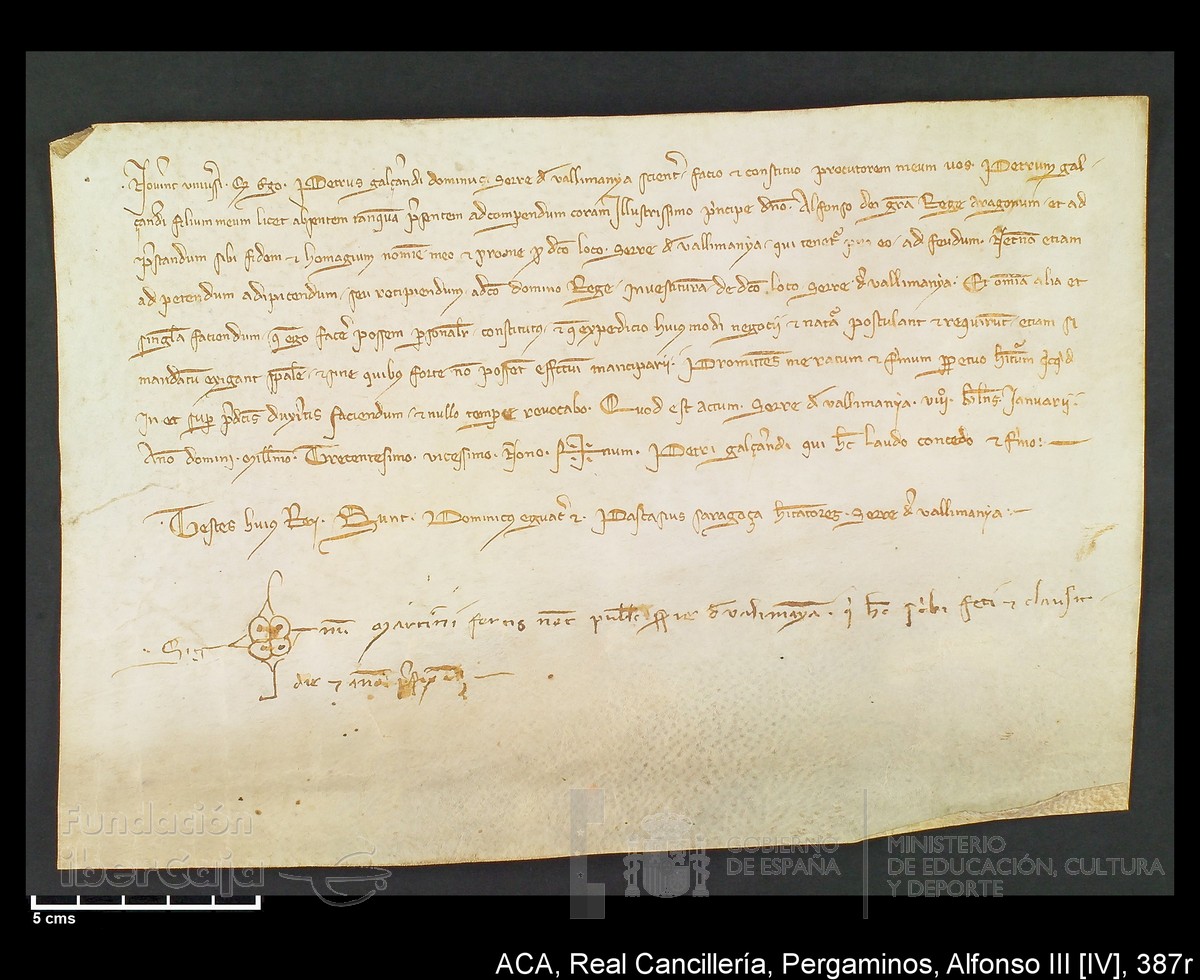 Nov̄int univ̄si q̄ Ego Petrus galçãdi dominus Serre đ vallimanya scient̄ facio et constituo procutorem meum vos Petrum gal
çãdi filium meum licet absentem tanquã p̄sentem ad compendum coram Illustrissimo p̄ncipe dño Alfonso dei grã Rege Aragonum et ad
p̄standum sibi fidem et homagium nomĩe meo et p̄ dc̄o loco Serre đ vallimanya qui tenet̄ eo ad feudum Necnõ etiam
ad petendum adipicendum seu recipiendum adc̄o domino Rege Investiturã de dc̄o loco Serre đ vallimanya Et om̃ia alia et
singl̄a faciendum q̄ ego fac̄e possem p̄sonalr̄ constitutus et q̄ expedicio huiusmodi negocii et natã postulant et requirũt etiam si
mandatũ exigant sp̄ale et sine quibus forte nõ possẽt effectui mancipari Promitẽs me ratum et f̄mum p̄petuo
in et sup̄ p̄dc̄is duxitis faciendum et nullo tempore revocabo Quod est actum Serre đ vallimanya januarii
Año domini Mill̄mo Trecentesimo vicessimo Nono Sig num Petri galçãdi qui h̄ laudo concedo et f̄mo
Testes huius Rei Sunt Dominicus Pascasius saragoça h̄itatores Serre đ vallimanya
Sig nũ Martini not̄ publ̄c đ vallimãya q̄ h̄ sc̄bi feci et clausit
die et año
Fundación
iberCaja
GOBIERNO
DE ESPAÑA
MINISTERIO
DE EDUCACIÓN, CULTURA
Y DEPORTE
5 cms
ACA, Real Cancillería, Pergaminos, Alfonso III [IV], 387r